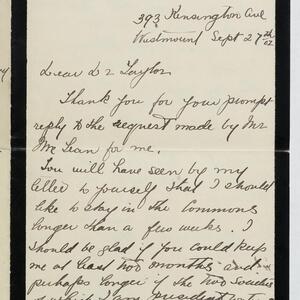 393 Kensington Ave
Westmount Sept 27th
02
Dear Dr Taylor
Thank you for your prompt
reply to the request made by Mr
McLean for me.
You will have seen by my
letter to yourself that I should
like to stay in the Commons
longer than a few weeks. I
should be glad if you could keep
me at least two months and
perhaps longer if the two